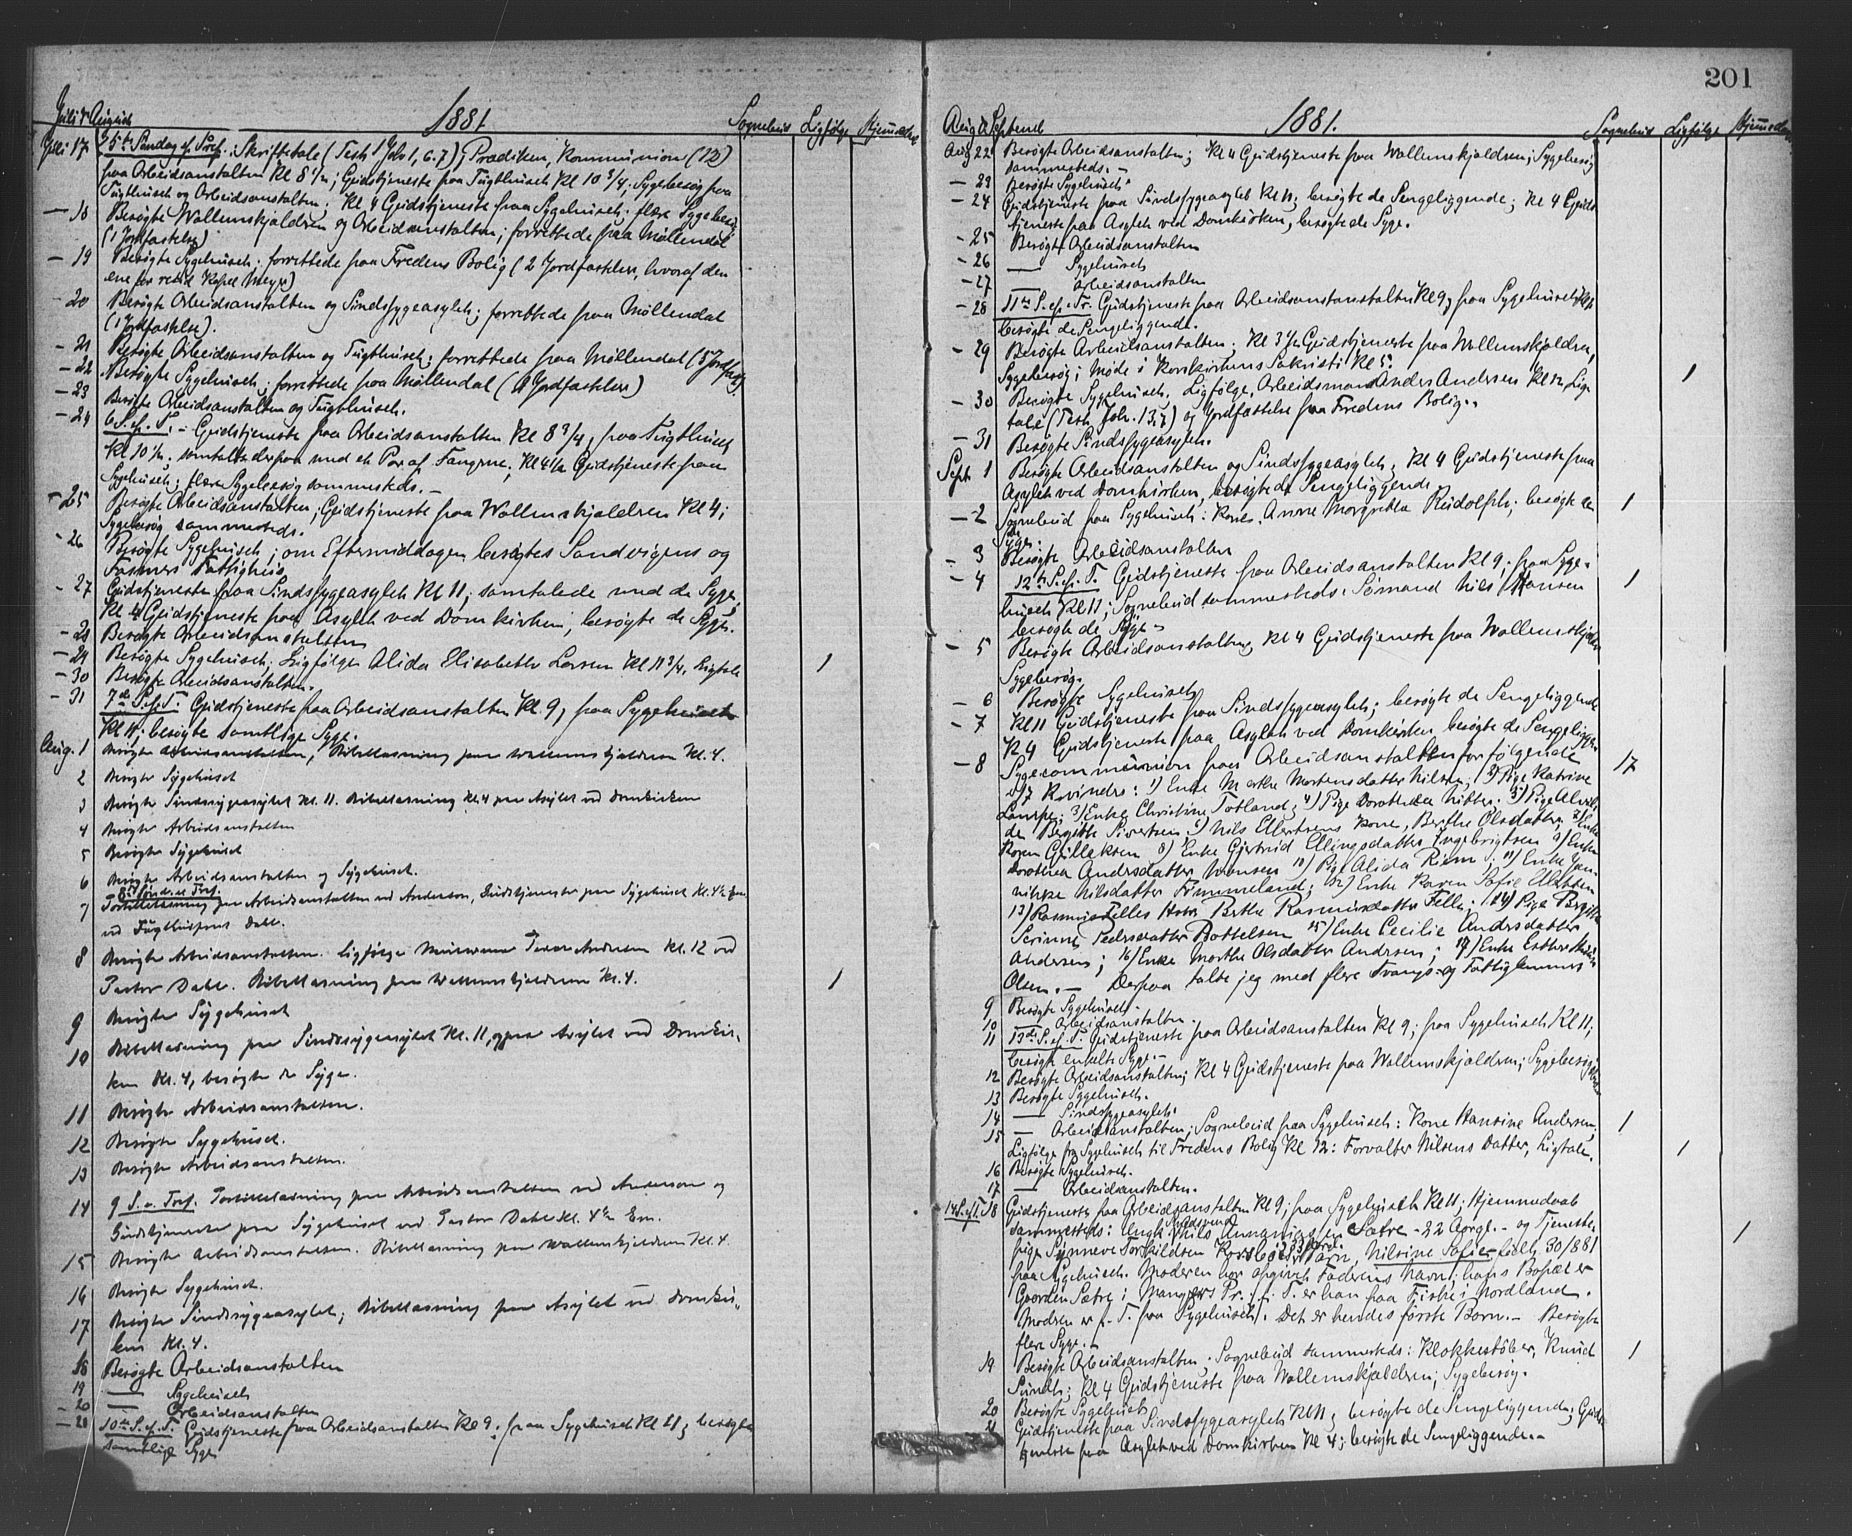 Juli & August 1881 Sognebud Ligfølge Hjemmedaab
Juli 17 5te Søndag ef. Tref. Skriftetale (Text 1 Joh 1, 6.7), Prædiken, Kommunion (12)
paa Arbeidsanstalten Kl 8 1/2; Gudstjeneste paa Tugthuset Kl 10 3/4. Sygebesøg paa
Tugthuset og Arbeidsanstalten; Kl 4 Gudstjeneste paa Sygehuset; flere Sygebesøg
— 18 Besøgte Wallemskjældren og Arbeidsanstalten; forrettede paa Møllendal
(1 Jordfæstelse)
— 19 Besøgte Sygehuset; forrettede paa Fredens Bolig (2 Jordfæstelser, hvoraf den
ene for resid Kapel Meyer)
— 20 Besøgte Arbeidsanstalten og Sindssygeasylet; forrettede paa Møllendal
(1 Jordfæstelse).
— 21 Besøgte Arbeidsanstalten og Tugthuset; forrettede paa Møllendal (3 Jordfæst)
— 22 Besøgte Sygehuset; forrettede paa Møllendal (4 Jordfæstelser)
— 23 Besøgte Arbeidsanstalten og Tugthuset.
— 24 6 S. ef. T. - Gudstjeneste paa Arbeidsanstalten Kl 8 3/4, paa Tugthuset
Kl 10 1/2. samtalede derpaa med et Par af Fangerne; Kl 4 1/2 Gudstjeneste paa
Sygehuset; flere Sygebesøg sammesteds. —
— 25 Besøgte Arbeidsanstalten; Gudstjeneste paa Wallemskjældren Kl 4;
Sygebesøg sammesteds.
— 26 Besøgte Sygehuset; om Eftermiddagen besøgtes Sandvigens og
Fasmers Fattighus
— 27 Gudstjeneste paa Sindssygeasylet Kl 11; samtalede med de Syge;
Kl 4 Gudstjeneste paa Asylet ved Domkirken, besøgte de Syge.
— 28 Besøgte Arbeidsanstalten
— 29 Besøgte Sygehuset. Ligfølge Alida Elisabeth Larsen Kl 11 3/4, Ligtale 1
— 30 Besøgte Arbeidsanstalten.
— 31 7de S. ef. T. Gudstjeneste paa Arbeidsanstalten Kl. 9, paa Sygehuset
Kl 11; besøgte samtlige Syge.
Aug. 1 Besøgte Arbeidsanstalten, Bibellæsning paa Wallemskjældren Kl. 4.
2 Besøgte Sygehuset
3 Besøgte Sindssygeasylet Kl. 11. Bibellæsning Kl. 4 paa Asylet ved Domkirken
4 Besøgte Arbeidsanstalten
5 Besøgte Sygehuset
6 Besøgte Arbeidsanstalten og Sygehuset.
8de Sønd. e. Tref.
7 Postillelæsning paa Arbeidsanstalten ved Anderson, Gudstjeneste paa Sygehuset Kl. 4 1/2 Em.
ved Tugthuspræst Dahl.
8 Besøgte Arbeidsanstalten. Ligfølge Andersen Kl. 12 ved
Pastor Dahl. Bibellæsning paa Wallemskjældren Kl. 4. 1
9 Besøgte Sygehuset
10 Bibellæsning paa Sindssygeasylet Kl. 11, og paa Asylet ved Domkir-
ken Kl. 4, besøgte de Syge.
11 Besøgte Arbeidsanstalten.
12 Besøgte Sygehuset.
13 Besøgte Arbeidsanstalten.
14 9 S. e. Tref. Postillelæsning paa Arbeidsanstalten ved Anderson og
Gudstjeneste paa Sygehuset ved Pastor Dahl Kl. 4 1/2 Em.
15 Besøgte Arbeidsanstalten. Bibellæsning paa Wallemskjældren Kl. 4.
16 Besøgte Sygehuset.
17 Besøgte Sindssygeasylet; Bibellæsning paa Asylet ved Domkir-
ken Kl. 4.
18 Besøgte Arbeidsanstalten
19 — Sygehuset
— 20 — Arbeidsanstalten
— 21 10de S. ef. T. Gudstjeneste paa Arbeidsanstalten Kl 9; paa Sygehuset Kl 11; besøgte
samtlige Syge
201
Aug & Septemb 1881. Sognebud Ligfølge Hjemmedaab
Aug 22 Besøgte Arbeidsanstalten; Kl 4 Gudstjeneste paa Wallemskjældren; Sygebesøg
sammesteds. —
— 23 Besøgte Sygehuset
— 24 Gudstjeneste paa Sindssygeasylet Kl 11; besøgte de Sengeliggende; Kl 4 Guds
tjeneste paa Asylet ved Domkirken, besøgte de Syge.
— 25 Besøgte Arbeidsanstalten
— 26 — Sygehuset
— 27 Arbeidsanstalten
— 28 11te S. ef. Tr. Gudstjeneste paa Arbeidsanstalten Kl 9, paa Sygehuset Kl 11
besøgte de Sengeliggende.
— 29 Besøgte Arbeidsanstalten; Kl 3 1/2 Gudstjeneste paa Wallemskjældren,
Sygebesøg; Møde i Korskirkens Sakristi Kl 5.
— 30 Besøgte Sygehuset. Ligfølge, Arbeidsmand Anders Andersen Kl 12, Lig- 1
tale (Text Joh. 13,7) og Jordfæstelse paa Fredens Bolig.
— 31 Besøgte Sindssygeasylet.
Sept. 1 Besøgte Arbeidsanstalten og Sindssygeasylet. Kl 4 Gudstjeneste paa
Asylet ved Domkirken, besøgte de Sengeliggende.
— 2 Sognebud paa Sygehuset: Kone Anne Margrethe Rudolph; besøgte de 1
Syge.
— 3 Besøgte Arbeidsanstalten
— 4 12te S. ef. T. Gudstjeneste paa Arbeidsanstalten Kl 9; paa Syge-
huset Kl 11; Sognebud sammesteds: Sømand Nils Hansen 1
besøgte de Syge
— 5 Besøgte Arbeidsanstalten; Kl 4 Gudstjeneste paa Wallemskjældren
Sygebesøg.
— 6 Besøgte Sygehuset
— 7 Kl 11 Gudstjeneste paa Sindssygeasylet; besøgte de Sengeliggende
Kl 4 Gudstjeneste paa Asylet ved Domkirken besøgte de Sengeliggen
— 8 Sygecommunion paa Arbeidsanstalten for følgende 17
17 Kvinder: 1) Enke Marthe Mortensdatter Nilsen; 2) Pige Katrine
Lampe; 3) Enke Christine Totland; 4) Pige Dorothea 5) Pige Alvil-
de Birgitte Sivertsen 6) Nils Ellertsens Kone, Berthe Olsdatter 7) Enke
Karen Gulliksen 8) Enke Gjertrud Ellingsdatter Ingebrigtsen 9) Enke
Dorothea Andersdatter Hansen 10) Pige Alida Riem; 11) Enke Jan-
nikke Nilsdatter Frimmeland; 12) Enke Karen Sofie Ellertsen
13) Rasmus Felles Kone Berthe Rasmusdatter Felle; 14) Pige Birgitte
Serinne Pedersdatter Bottelsen 15) Enke Cecilie Andersdatter
Andersen; 16) Enke Marthe Olsdatter Andersen; 17) Enke Esther
Olsen. — Derpaa talte jeg med flere Tvangs- og Fattiglemmer
9 Besøgte Sygehuset.
10 — Arbeidsanstalten.
11 13de S. ef. T. Gudstjeneste paa Arbeidsanstalten Kl 9; paa Sygehuset Kl 11;
besøgte enkelte Syge. —
12 Besøgte Arbeidsanstalten; Kl 4 Gudstjeneste paa Wallemskjældren; Sygebesøg
13 Besøgte Sygehuset.
14 — Sindssygeasylet.
15 — Arbeidsanstalten; Sognebud paa Sygehuset: Kone Hansine Andersen, 1
Ligfølge fra Sygehuset til Fredens Bolig Kl 12: Forvalter Nilsens Datter, Ligtale. 1
16 Besøgte Sygehuset.
17 — Arbeidsanstalten.
14 S. ef. T. 18 Gudstjeneste paa Arbeidsanstalten Kl 9; paa Sygehuset Kl 11; Hjemmedaab
sammesteds: Ungk. Nils Sætre - 22 Aar - og Tjeneste- 1
pige Synneve Torkildsen Barn, Nilsine Sofie født 30/8 81
paa Sygehuset. Moderen har opgivet Faderens Navn; hans Bopæl er
Gaarden Sætre i Mangers Pr. f. T. er han paa Fiske i Nordland.
Modren er f. T. paa Sygehuset. Det er hendes første Barn. — Besøgte
flere Syge. —
19 Besøgte Arbeidsanstalten. Sognebud sammesteds: Klokkestøber, Knud 1
Sundt; Kl 4 Gudstjeneste paa Wallemskjældren; Sygebesøg.
20 Besøgte Sygehuset
21 Gudstjeneste paa Sindssygeasylet Kl 11; besøgte de Sengeliggende; Guds
tjeneste paa Asylet ved Domkirken Kl 4; besøgte de Sengeliggende. —